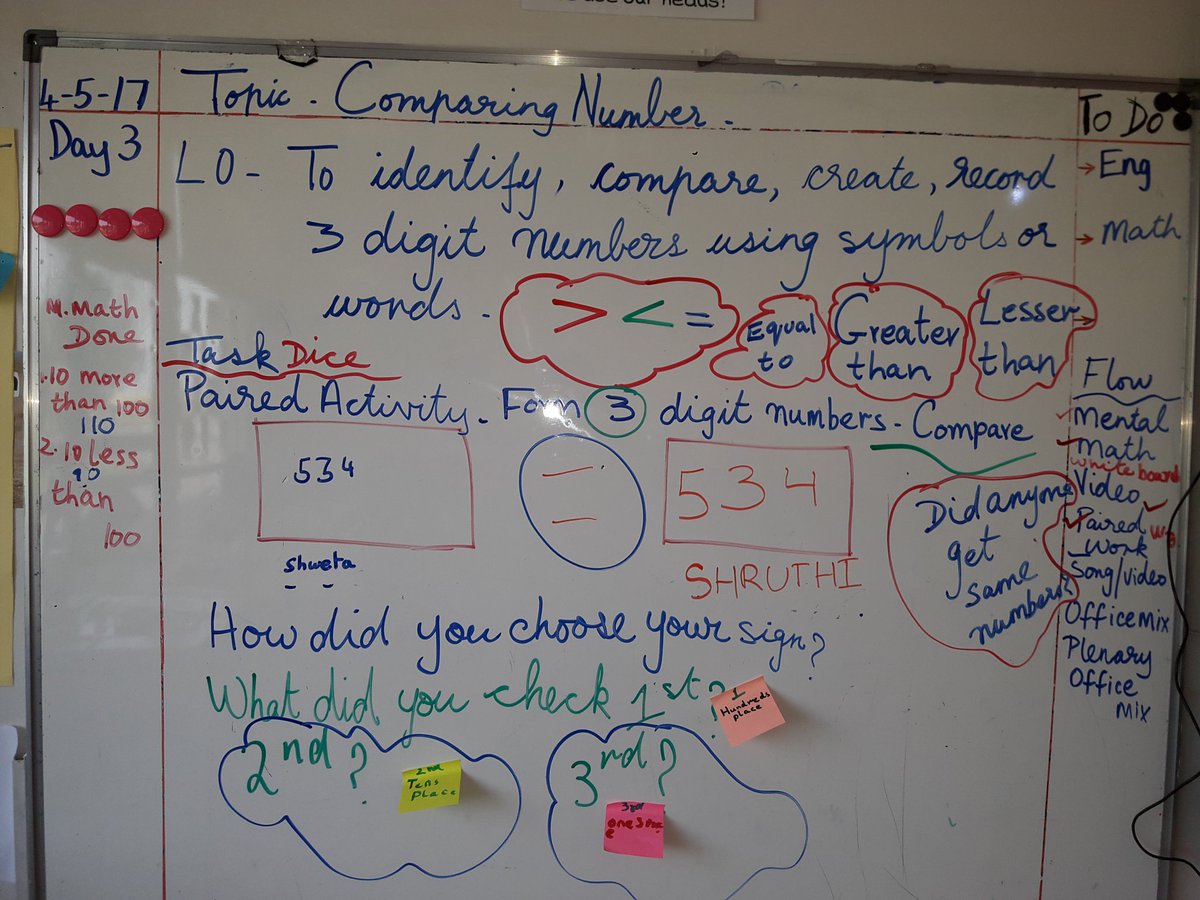 use our heads!
4-5-17
Day 3
Topic - Comparing Number.
LO - To identify, compare, create, record
3 digit numbers using symbols or
words.
> < =
Equal
to
Greater
than
Lesser
than
Task Dice
Paired Activity. Form 3 digit numbers - Compare
534
=
534
shweta
SHRUTHI
Did anyone
get
same
numbers?
How did you choose your sign?
What did you check 1st?
1
Hundreds
place
2nd?
2nd
Tens
Place
3rd?
3rd
M. Math
Done
1.10 more
than 100
110
2.10 less
90
than
100
To Do
→ Eng
→ Math
→
Flow
Mental
Math
white board
Video
Paired
Work
Song/video
Office mix
Plenary
Office
mix